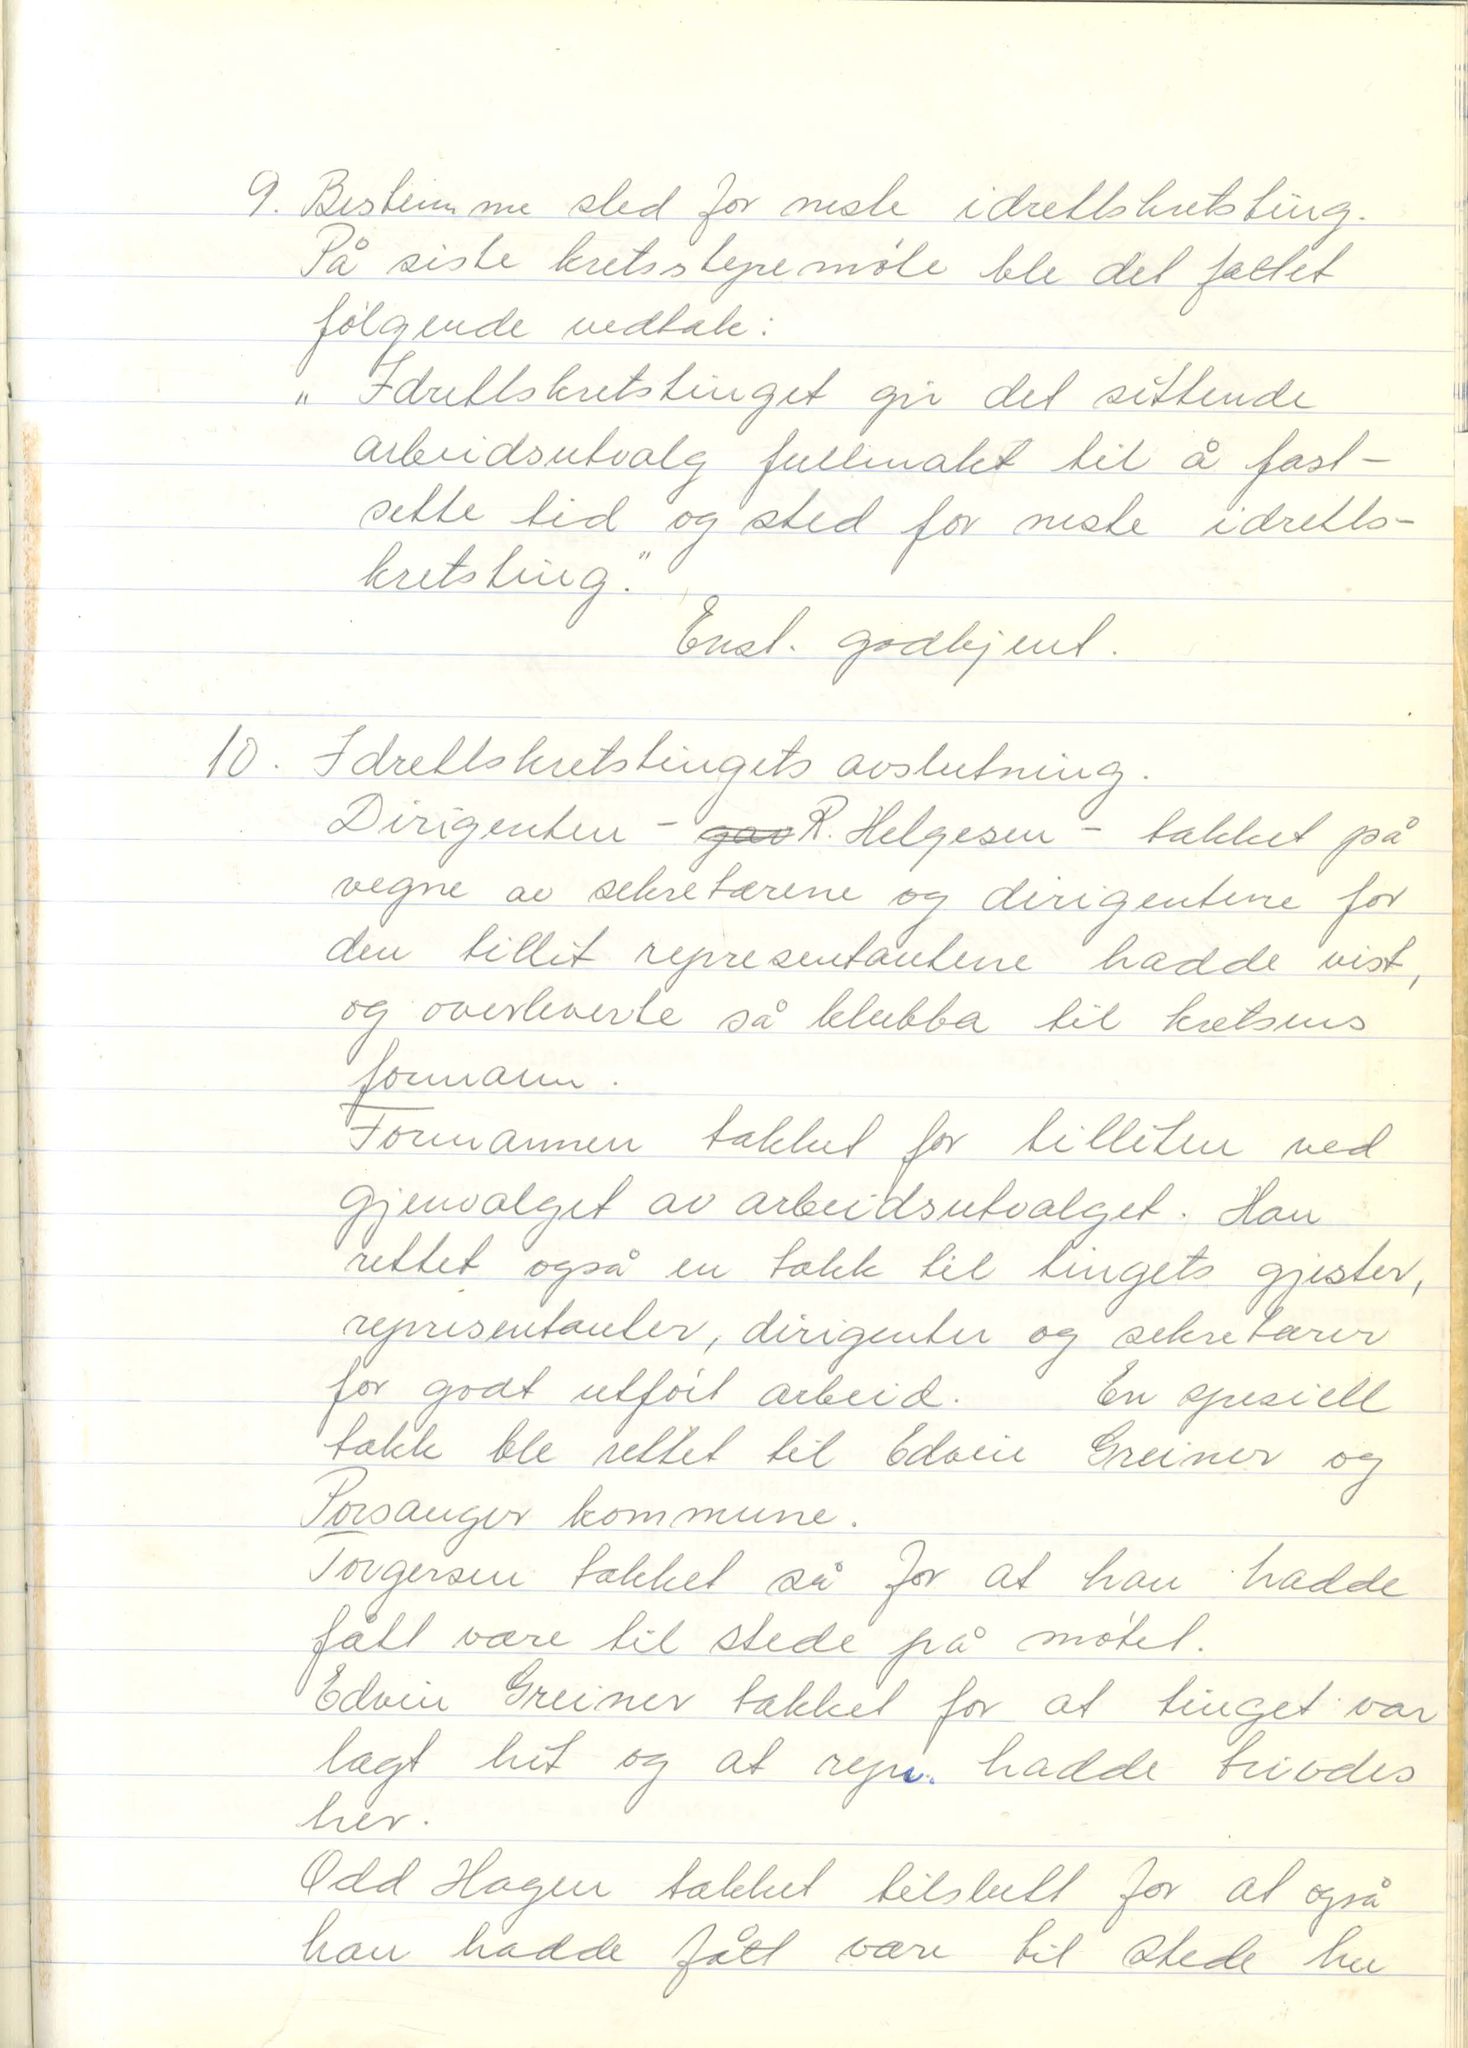 9. Bestemme sted for neste idrettskretsting.
På siste kretsstyremøte ble det fattet
følgende vedtak:
" Idrettskretstinget gir det sittende
arbeidsutvalg fullmakt til å fast-
sette tid og sted for neste idretts-
kretsting."
Enst. godkjent.
10. Idrettskretstingets avslutning.
Dirigenten - gav R. Helgesen - takket på
vegne av sekretærene og dirigentene for
den tillit representantene hadde vist,
og overleverte så klubba til kretsens
formann.
Formannen takket for tilliten ved
gjenvalget av arbeidsutvalget. Han
rettet også en takk til tingets gjester,
representanter, dirigenter og sekretærer
for godt utført arbeid. En spesiell
takk ble rettet til Edvin Greiner og
Porsanger kommune.
Torgersen takket så for at han hadde
fått være til stede på møtet.
Edvin Greiner takket for at tinget var
lagt hit og at repr. hadde trivdes
her.
Odd Hagen takket tilslutt for at også
han hadde fått være til stede her